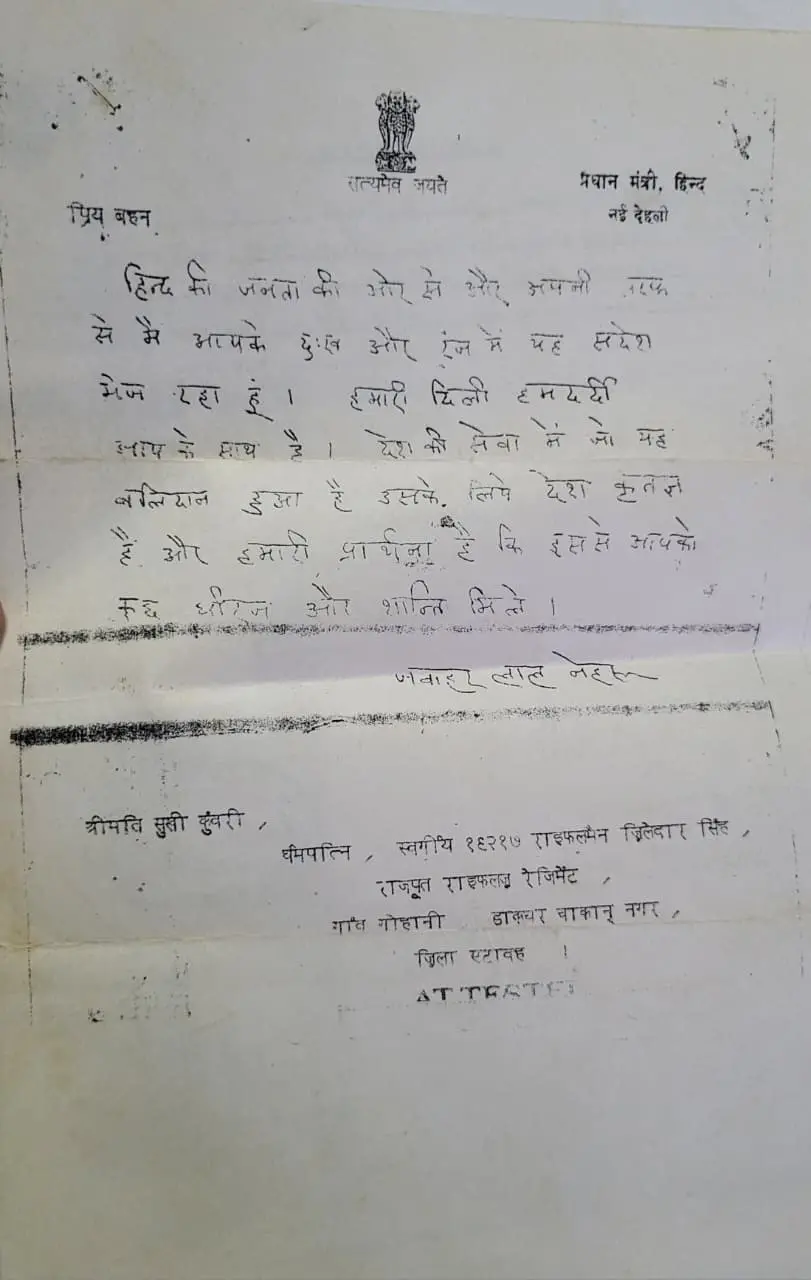 सत्यमेव जयते
प्रधान मंत्री, हिन्द
नई देहली
प्रिय बहन
हिन्द की जनता की ओर से और अपनी तरफ
से मै आपके दुःख और रंज में यह संदेश
भेज रहा हूं । हमारी दिली हमदर्दी
आप के साथ है । देश की सेवा में जो यह
बलिदान हुआ है उसके लिये देश कृतज्ञ
है और हमारी प्रार्थना है कि इससे आपको
कुछ धीरज और शान्ति मिले ।
जवाहर लाल नेहरू
श्रीमति सुखी कुंवरी ,
धर्मपत्नि , स्वर्गीय १६२१७ राइफलमैन ज़िलेदार सिंह ,
राजपूत राइफलज़ रेजिमेंट ,
गांव गोहानी डाकघर चाकान् नगर ,
ज़िला एटावह ।
ATTESTED